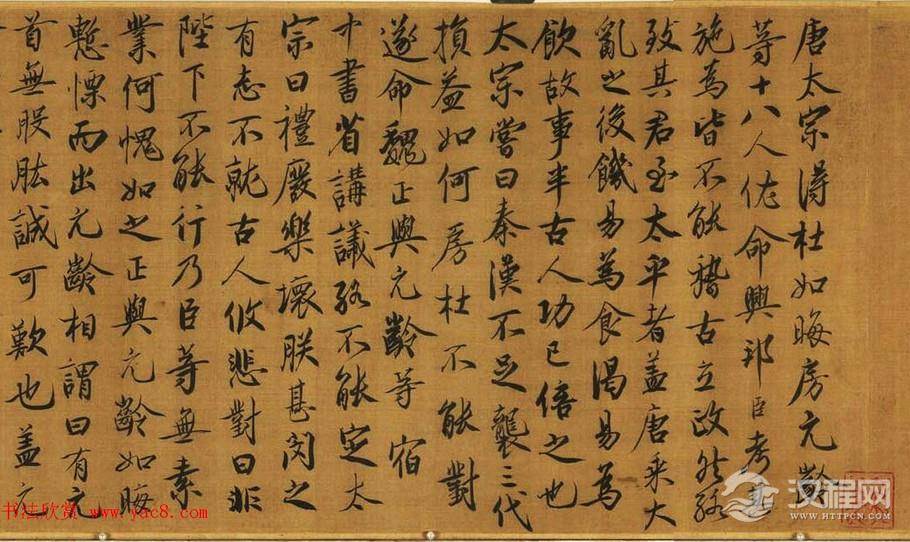 唐太宗得杜如晦房元齡
等十八人佐命興邦臣考其
施為皆不能稽古立政然終
致其君至太平者盖唐乗大
亂之後饑易為食渴易為
飲故事半古人功已倍之也
太宗嘗曰秦漢不足襲三代
損益如何房杜不能對
遂命魏正與元齡等宿
中書省講議終不能定太
宗曰禮廢樂壞朕甚閔之
有志不就古人攸悲對曰非
陛下不能行乃臣等無素
業何愧如之正與元齡如晦
慙慄而出元齡相謂曰有元
首無股肱誠可歎也盖
书法欣赏 www.yac8.com
汉程网
WWW.HTTPCN.COM